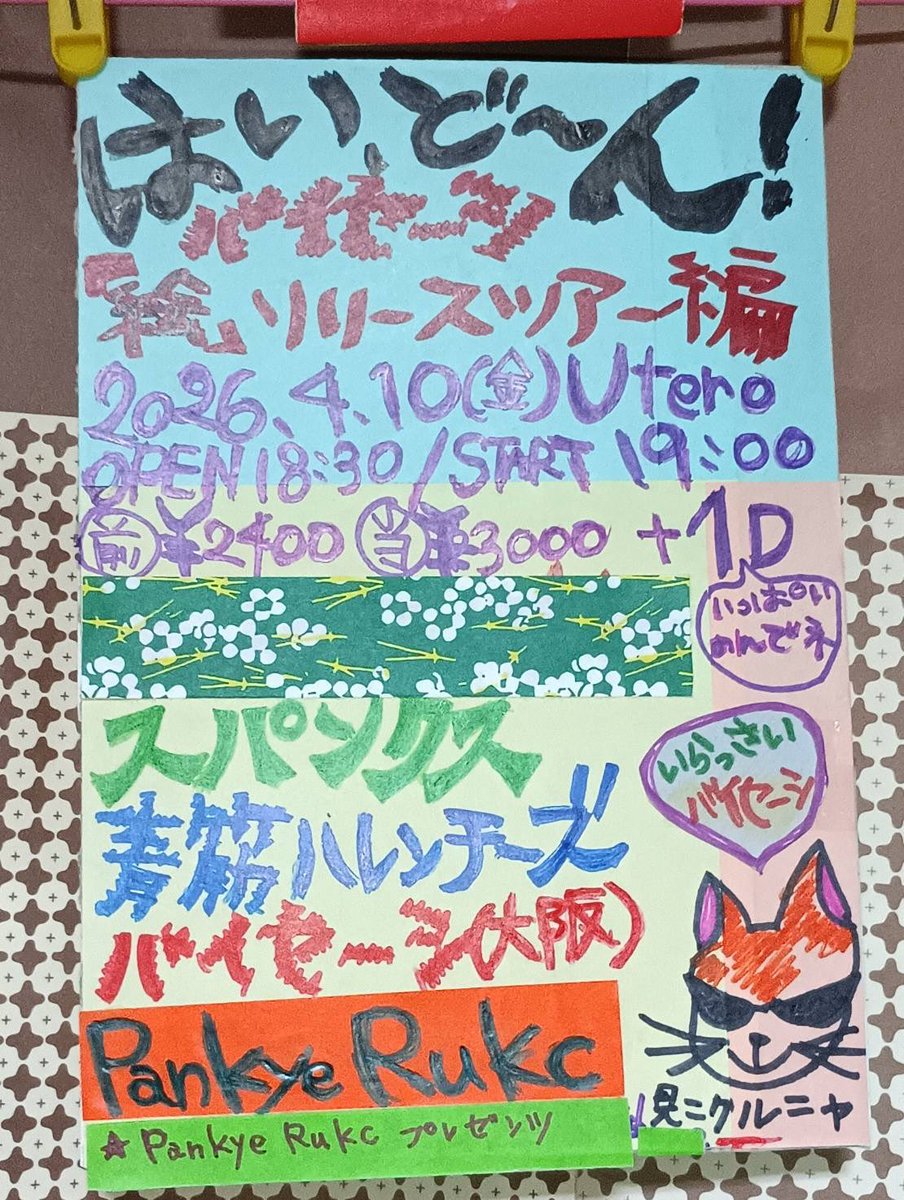 はい、ど〜ん!
バイセーン
「絵」リリースツアー編
2026.4.10(金)Utero
OPEN 18:30/START 19:00
前¥2400 当¥3000 +1D
いっぱい
のんでネ
スパンクス
いらっさい
バイセーン
青筋ハレンチーズ
バイセーン(大阪)
Pankye Rukc
見ニクルニャ
★Pankye Rukc プレゼンツ